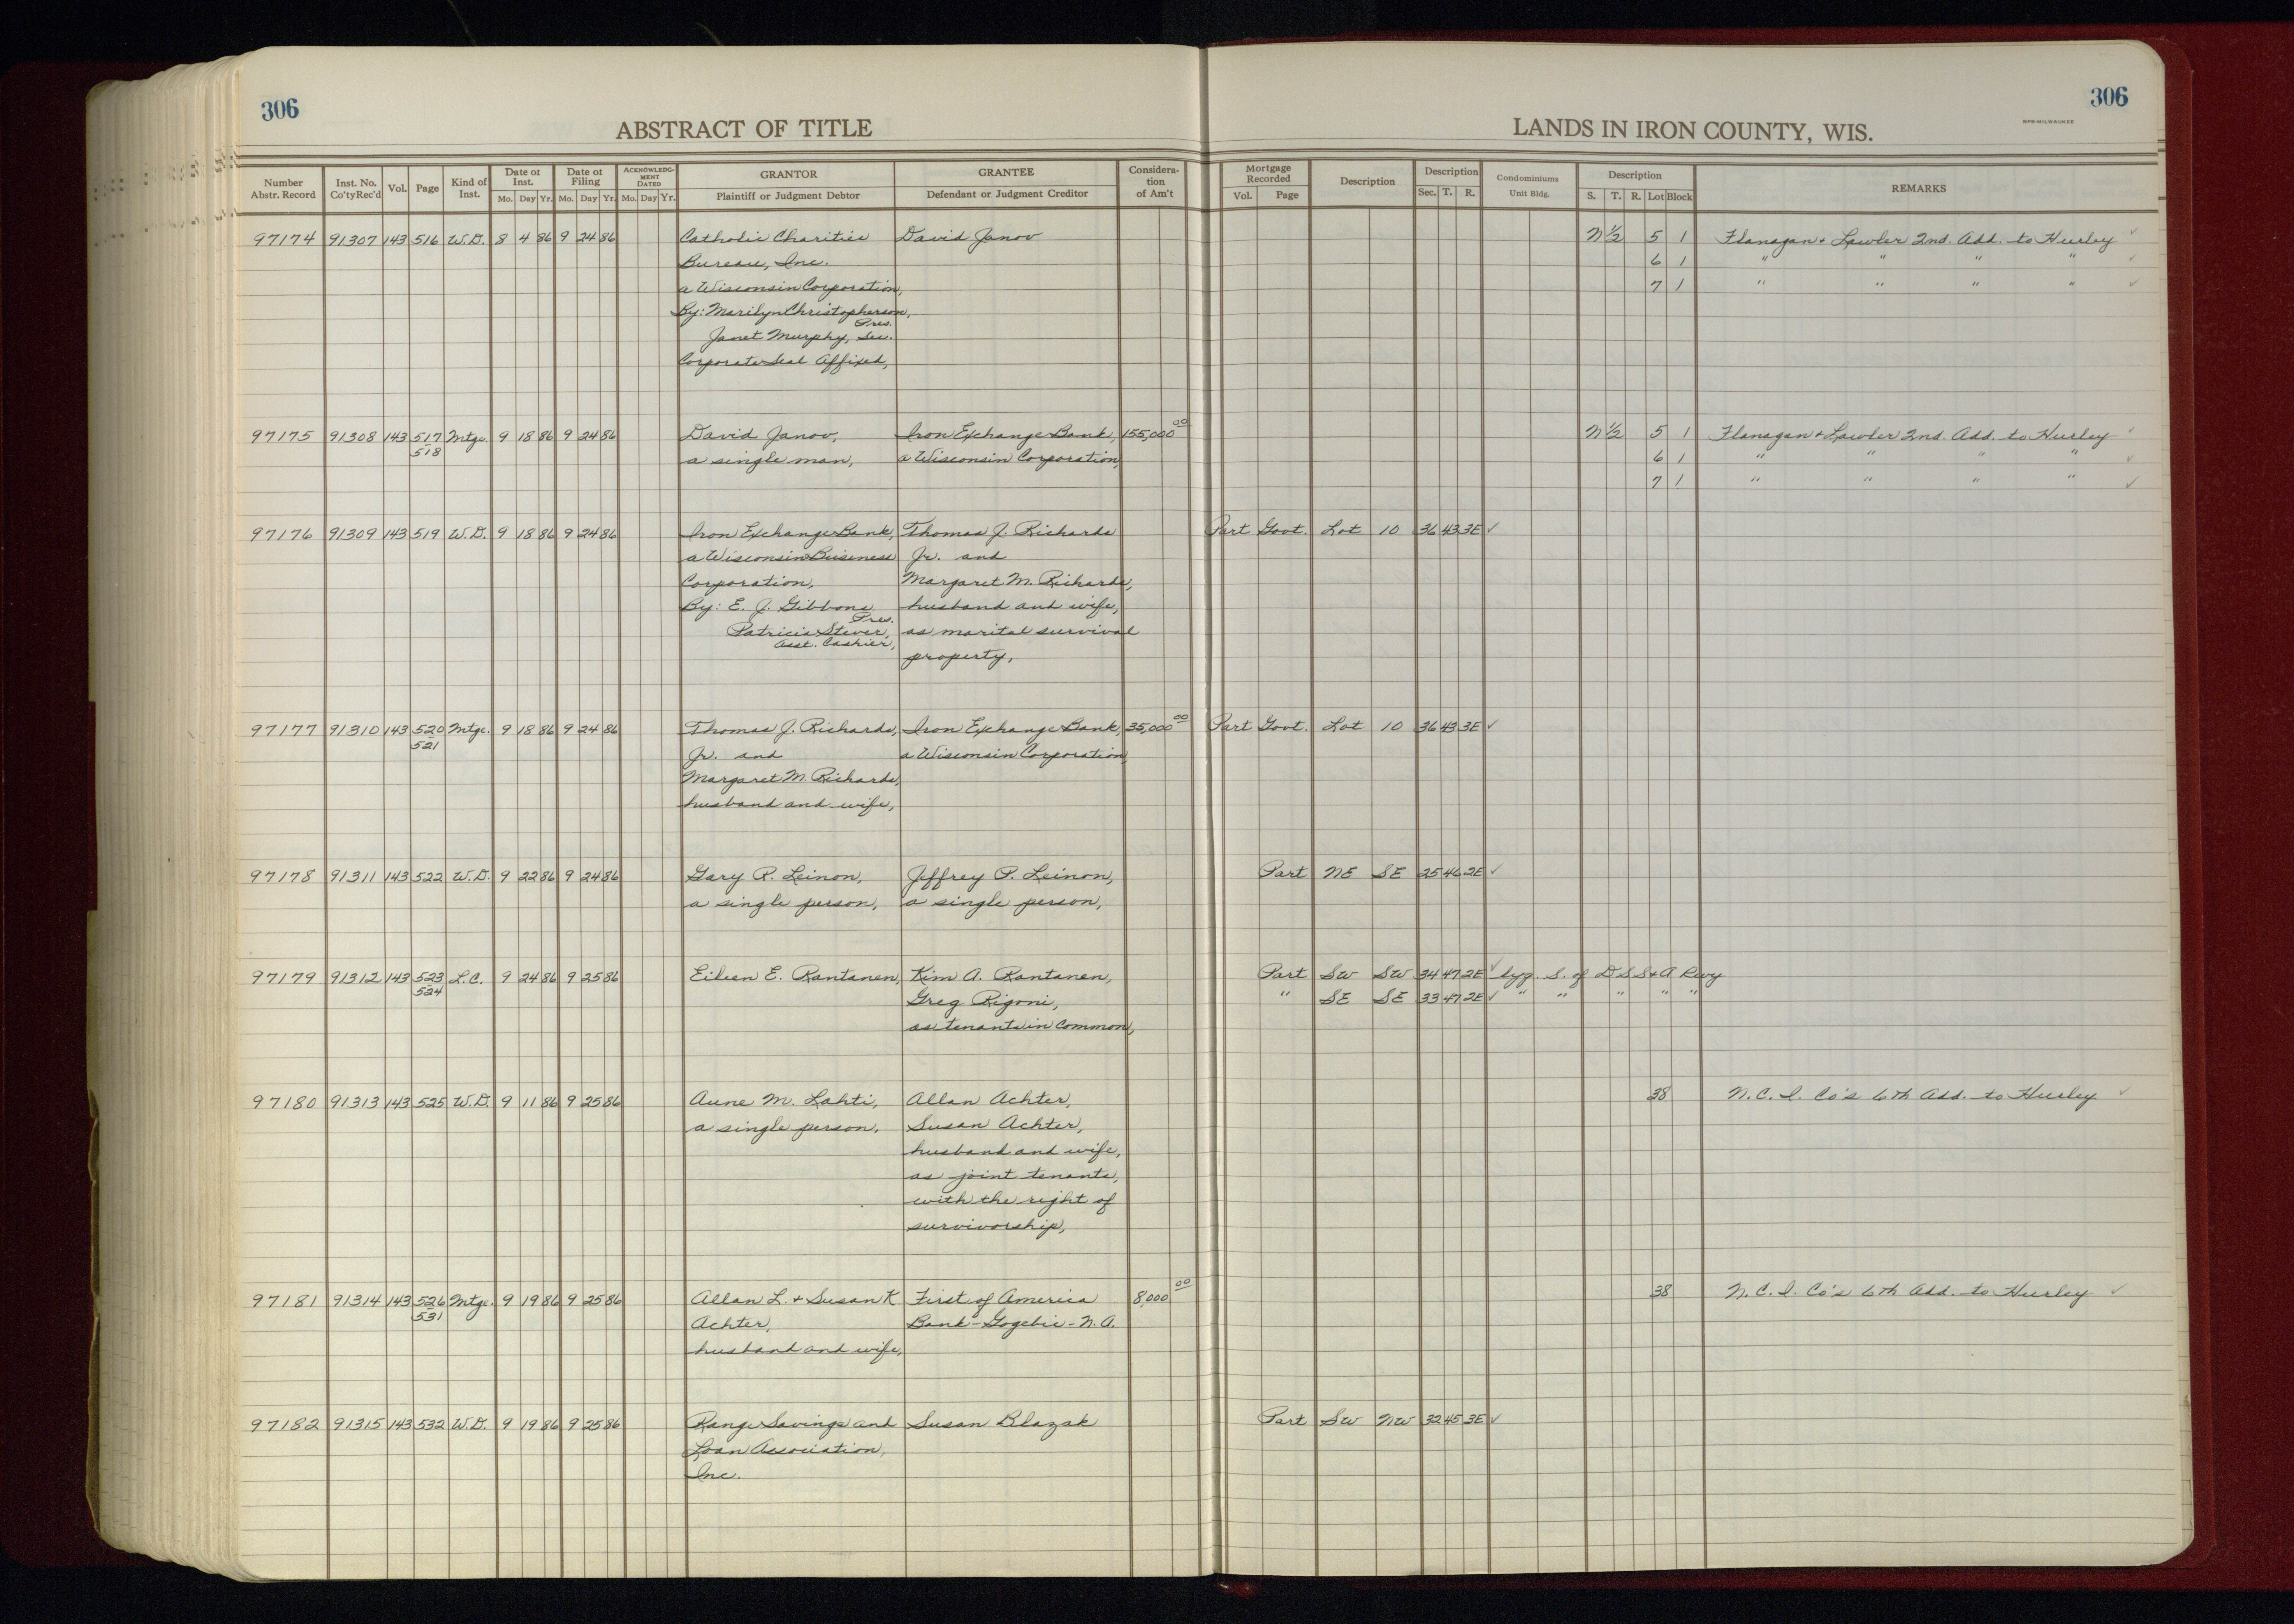 306
306
ABSTRACT OF TITLE
LANDS IN IRON COUNTY, WIS.
BPB-MILWAUKEE
Number Abstr. Record | Inst. No. Co'ty Rec'd | Vol. | Page | Kind of Inst. | Date of Inst. Mo. Day Yr. | Date of Filing Mo. Day Yr. | ACKNOWLEDGMENT DATED Mo. Day Yr. | GRANTOR Plaintiff or Judgment Debtor | GRANTEE Defendant or Judgment Creditor | Consideration of Am't | Mortgage Recorded Vol. Page | Description | Description Sec. T. R. | Condominiums Unit Bldg. | Description S. T. R. Lot Block | REMARKS
97174 91307 143 516 W.D. 8 4 86 9 24 86 Catholic Charities David Janov N 1/2 5 1 Flanagan + Lawler 2nd. Add. to Hurley ✓
Bureau, Inc. 6 1 " " " " ✓
a Wisconsin Corporation, 7 1 " " " " ✓
By: Marilyn Christopherson,
Pres.
Janet Murphy, Sec.
Corporate Seal Affixed,
97175 91308 143 517 Mtge. 9 18 86 9 24 86 David Janov, Iron Exchange Bank, 155,000 00 N 1/2 5 1 Flanagan + Lawler 2nd. Add. to Hurley ✓
518 a single man, a Wisconsin Corporation, 6 1 " " " " ✓
7 1 " " " " ✓
97176 91309 143 519 W.D. 9 18 86 9 24 86 Iron Exchange Bank, Thomas J. Richards Part Govt. Lot 10 36 43 3E ✓
a Wisconsin Business Jr. and
Corporation, Margaret M. Richards,
By: E. J. Gibbons husband and wife,
Pres.
Patricia Stever, as marital survival
Asst. Cashier,
property,
97177 91310 143 520 Mtge. 9 18 86 9 24 86 Thomas J. Richards, Iron Exchange Bank, 35,000 00 Part Govt. Lot 10 36 43 3E ✓
521 Jr. and a Wisconsin Corporation,
Margaret M. Richards,
husband and wife,
97178 91311 143 522 W.D. 9 22 86 9 24 86 Gary R. Leinon, Jeffrey P. Leinon, Part NE SE 25 46 2E ✓
a single person, a single person,
97179 91312 143 523 L.C. 9 24 86 9 25 86 Eileen E. Rantanen, Kim A. Rantanen, Part SW SW 34 47 2E ✓ lyg. S. of D S S + A Rwy
524 Greg Rigoni, " SE SE 33 47 2E ✓ " " " " "
as tenants in common,
97180 91313 143 525 W.D. 9 11 86 9 25 86 Aune M. Lahti, Allan Achter, 38 N.C.I. Co's 6th Add. to Hurley ✓
a single person, Susan Achter,
husband and wife,
as joint tenants,
with the right of
survivorship,
97181 91314 143 526 Mtge. 9 19 86 9 25 86 Allan L. + Susan K First of America 8,000 00 38 N.C.I. Co's 6th Add. to Hurley ✓
531 Achter, Bank-Gogebic-N.A.
husband and wife,
97182 91315 143 532 W.D. 9 19 86 9 25 86 Range Savings and Susan Blazak Part SW NW 32 45 3E ✓
Loan Association,
Inc.